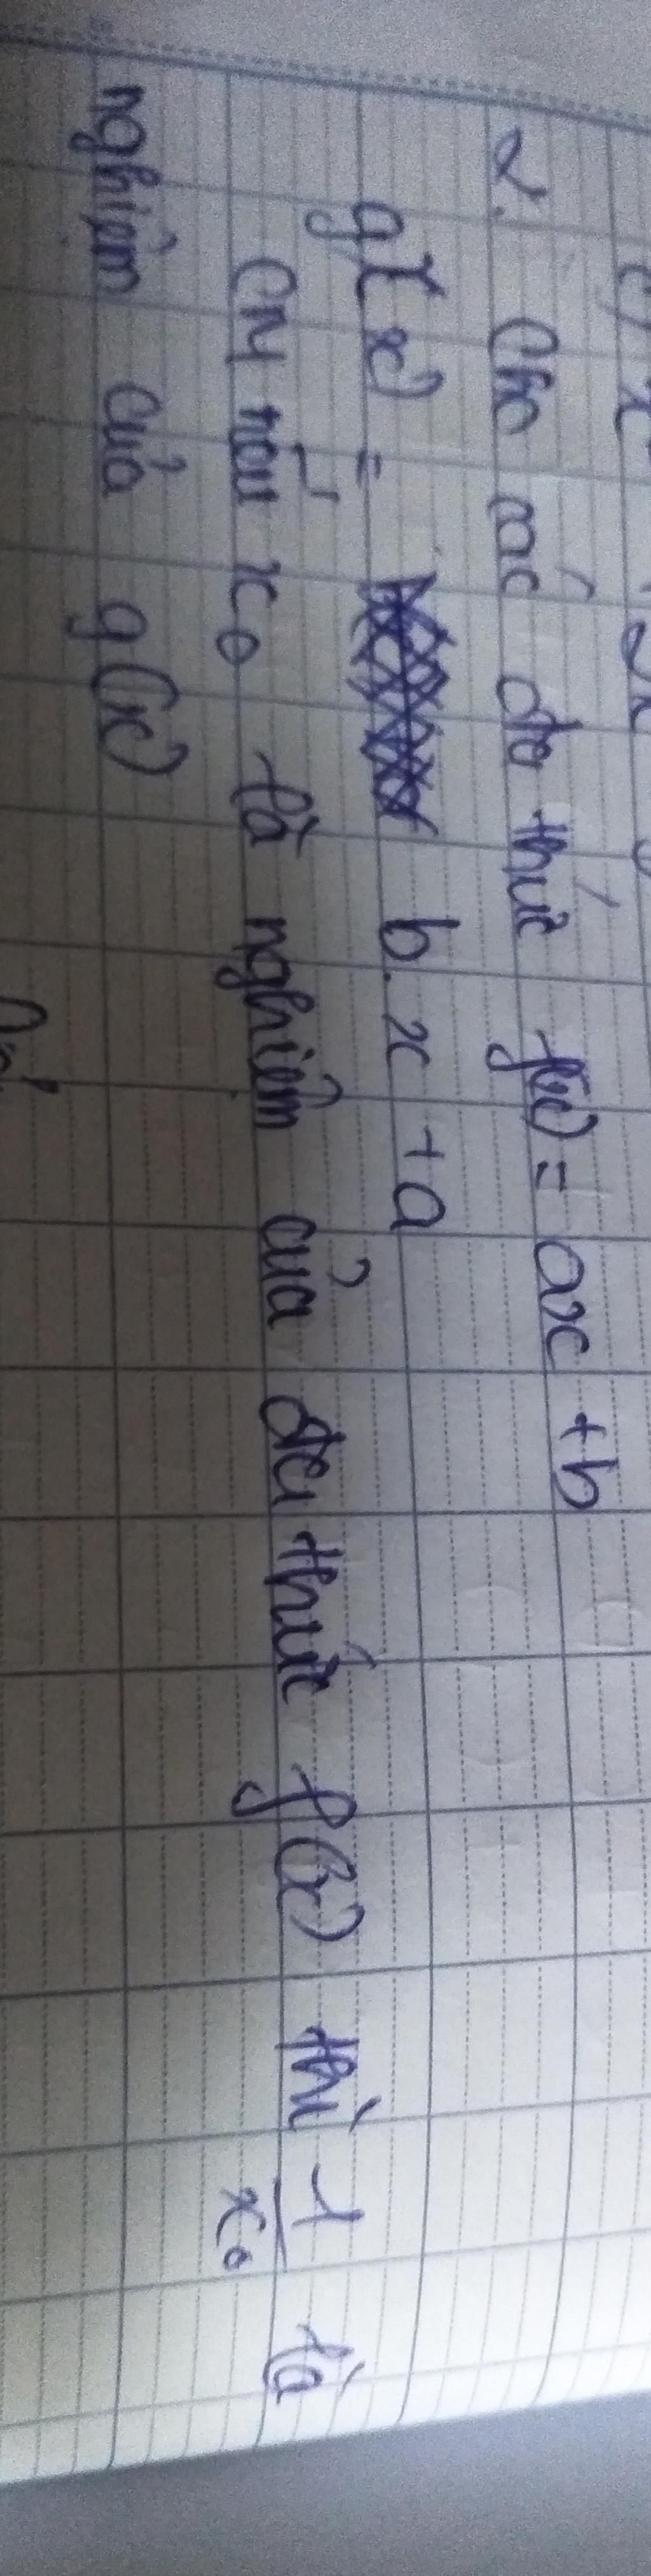 2. Cho các đa thức f(x) = ax + b
g(x) = b.x + a
CM nếu x₀ là nghiệm của đa thức f(x) thì 1/x₀ là
nghiệm của g(x)